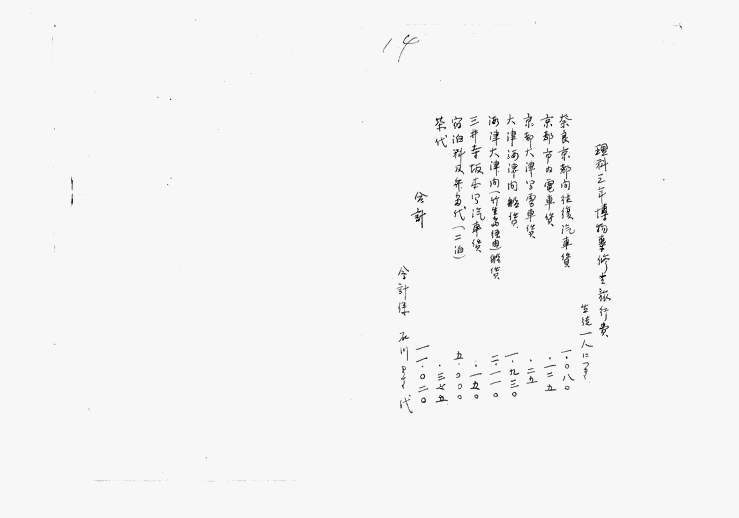 14
理科三年博物専修生旅行費
生徒一人につき
奈良京都間往復汽車賃 一・〇八〇
京都市内電車賃 ・一二五
京都大津間電車賃 ・二五
大津海津間船賃 一・九三〇
海津大津間(竹生島経由)船賃 二・一一〇
三井寺坂本間汽車賃 ・一五〇
宿泊料及弁当代(二泊) 五・〇〇〇
茶代 ・三七五
合計 一一・〇二〇
会計係 石川 代